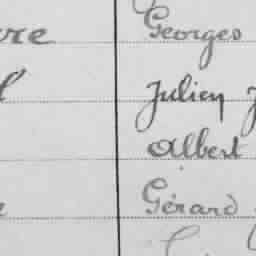 Georges
Julien J
Albert
Gérard